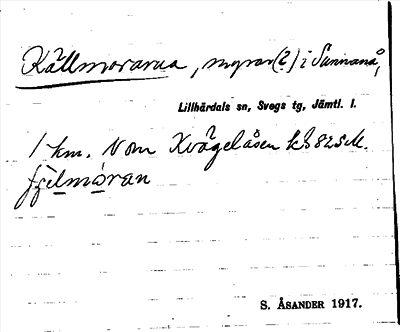 Källmorarna, myrar(2) i Sunnanå,
Lillhärdals sn, Svegs tg, Jämtl. l.
1 km. V om Kvägelåsen
fjelmóran
S. ÅSANDER 1917.